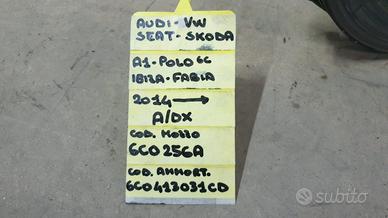 AUDI-VW
SEAT-SKODA
A1-POLO 6C
IBIZA-FABIA
2014 →
A/DX
COD. MOZZO
6C0256A
COD. AMMORT.
6C0413031CD
subito